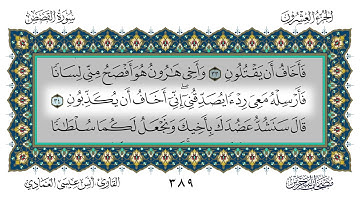 الجزء العشرون
سورة القصص
فَأَخَافُ أَن يَقْتُلُونِ ٣٣ وَأَخِى هَٰرُونُ هُوَ أَفْصَحُ مِنِّى لِسَانًا
فَأَرْسِلْهُ مَعِىَ رِدْءًا يُصَدِّقُنِىٓ ۖ إِنِّىٓ أَخَافُ أَن يُكَذِّبُونِ ٣٤
قَالَ سَنَشُدُّ عَضُدَكَ بِأَخِيكَ وَنَجْعَلُ لَكُمَا سُلْطَٰنًا
٣٨٩
القارئ أنس عيسى العمادي